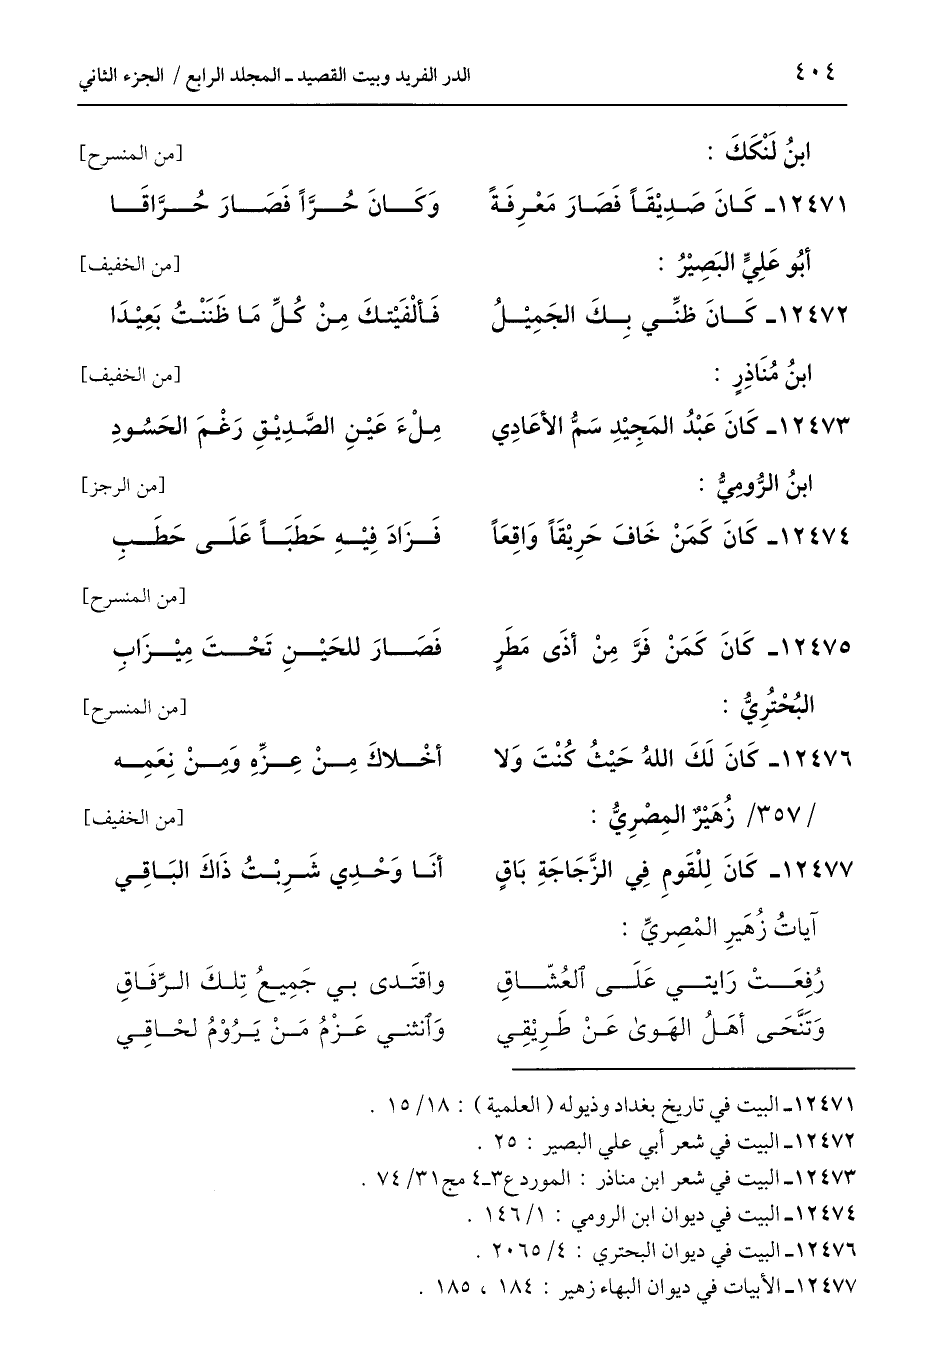 ٤٠٤ الدر الفريد وبيت القصيد ـ المجلد الرابع / الجزء الثاني
ابنُ لَنْكَكَ : [من المنسرح]
١٢٤٧١ـ كَانَ صَدِيْقَاً فَصَارَ مَعْرِفَةً وَكَانَ حُرَّاً فَصَارَ حُرَّاقَا
أبُو عَلِيٍّ البَصِيْرُ : [من الخفيف]
١٢٤٧٢ـ كَانَ ظَنِّي بِكَ الجَمِيْلُ فَألْفَيْتكَ مِنْ كُلِّ مَا ظَنَنْتُ بَعِيْدَا
ابنُ مُنَاذِرٍ : [من الخفيف]
١٢٤٧٣ـ كَانَ عَبْدُ المَجِيْدِ سَمُّ الأعَادِي مِلْءَ عَيْنِ الصَّدِيْقِ رَغْمَ الحَسُودِ
ابنُ الرُّومِيُّ : [من الرجز]
١٢٤٧٤ـ كَانَ كَمَنْ خَافَ حَرِيْقَاً وَاقِعَاً فَزَادَ فِيْهِ حَطَبَاً عَلَى حَطَبِ
[من المنسرح]
١٢٤٧٥ـ كَانَ كَمَنْ فَرَّ مِنْ أذَى مَطَرٍ فَصَارَ للحَيْنِ تَحْتَ مِيْزَابِ
البُحْتُرِيُّ : [من المنسرح]
١٢٤٧٦ـ كَانَ لَكَ اللهُ حَيْثُ كُنْتَ وَلا أخْلاكَ مِنْ عِزِّهِ وَمِنْ نِعَمِه
/٣٥٧/ زُهَيْرٌ المِصْرِيُّ : [من الخفيف]
١٢٤٧٧ـ كَانَ لِلْقَومِ فِي الزَّجَاجَةِ بَاقٍ أنَا وَحْدِي شَرِبْتُ ذَاكَ البَاقِي
آيَاتُ زُهَيرِ المْصِريِّ :
رُفِعَتْ رَايتي عَلَى ٱلعُشّاقِ واقتَدى بي جَميعُ تِلكَ الرِّفَاقِ
وَتَنَّحَى أهَلُ الهَوىٰ عَنْ طَرِيْقِي وَٱنثني عَزْمُ مَنْ يَرُوْمُ لحْاقِي
١٢٤٧١ـ البيت في تاريخ بغداد وذيوله ( العلمية ) : ١٨/ ١٥ .
١٢٤٧٢ـ البيت في شعر أبي علي البصير : ٢٥ .
١٢٤٧٣ـ البيت في شعر ابن مناذر : المورد ع٣ـ٤ مج٣١/ ٧٤ .
١٢٤٧٤ـ البيت في ديوان ابن الرومي : ١/ ١٤٦ .
١٢٤٧٦ـ البيت في ديوان البحتري : ٤/ ٢٠٦٥ .
١٢٤٧٧ـ الأبيات في ديوان البهاء زهير : ١٨٤ ، ١٨٥ .